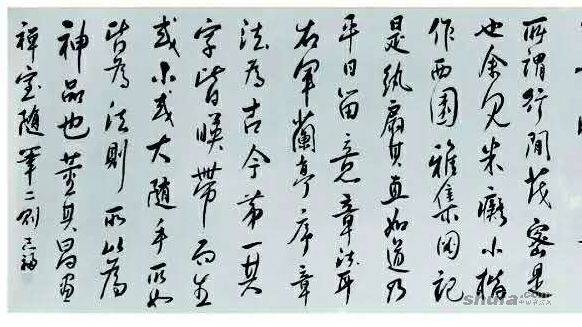 所謂行間茂密是
也余見米癡小楷
作西園雅集圖記
是紈扇其直如道乃
平日留意章法耳
右軍蘭亭序章
法為古今第一其
字皆暎帶而生
或小或大隨手所如
皆為法則所以為
神品也董其昌畫
禪室隨筆二則